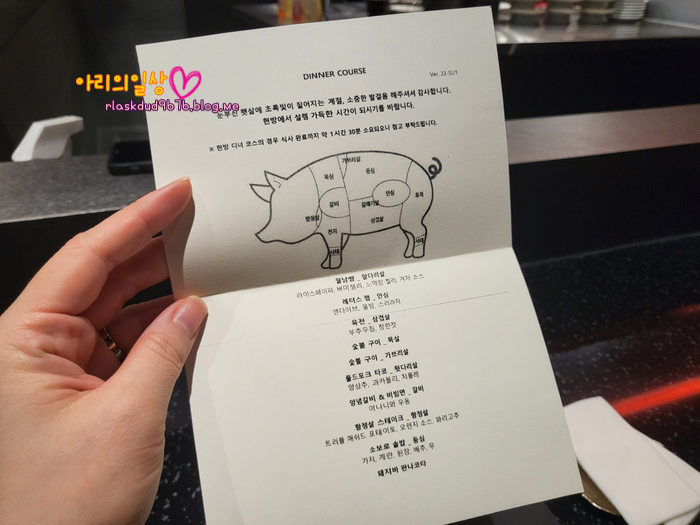 아리의일상
rlaskdud9b7b.blog.me
DINNER COURSE
Ver. 22-SU1
눈부신 햇살에 초록빛이 짙어지는 계절, 소중한 발걸음 해주셔서 감사합니다.
현방에서 설렘 가득한 시간이 되시기를 바랍니다.
※ 현방 디너 코스의 경우 식사 완료까지 약 1시간 30분 소요되오니 참고 부탁드립니다.
가브리살
목심
등심
갈비
갈매기살
안심
후지
항정살
삼겹살
전지
사태
사태
월남쌈 _ 앞다리살
라이스페이퍼, 버미셀리, 느억맘 젤리, 겨자 소스
레터스 랩 _ 안심
엔다이브, 쌈장, 스리라차
육전 _ 삼겹살
부추무침, 창란젓
숯불 구이 _ 목살
숯불 구이 _ 가브리살
풀드포크 타코 _ 뒷다리살
양상추, 과카몰리, 치폴레
양념갈비 & 비빔면 _ 갈비
이나니와 우동
항정살 스테이크 _ 항정살
트러플 매쉬드 포테이토, 오렌지 소스, 꽈리고추
소보로 솥밥 _ 등심
가지, 계란, 된장, 배추, 무
돼지바 판나코타